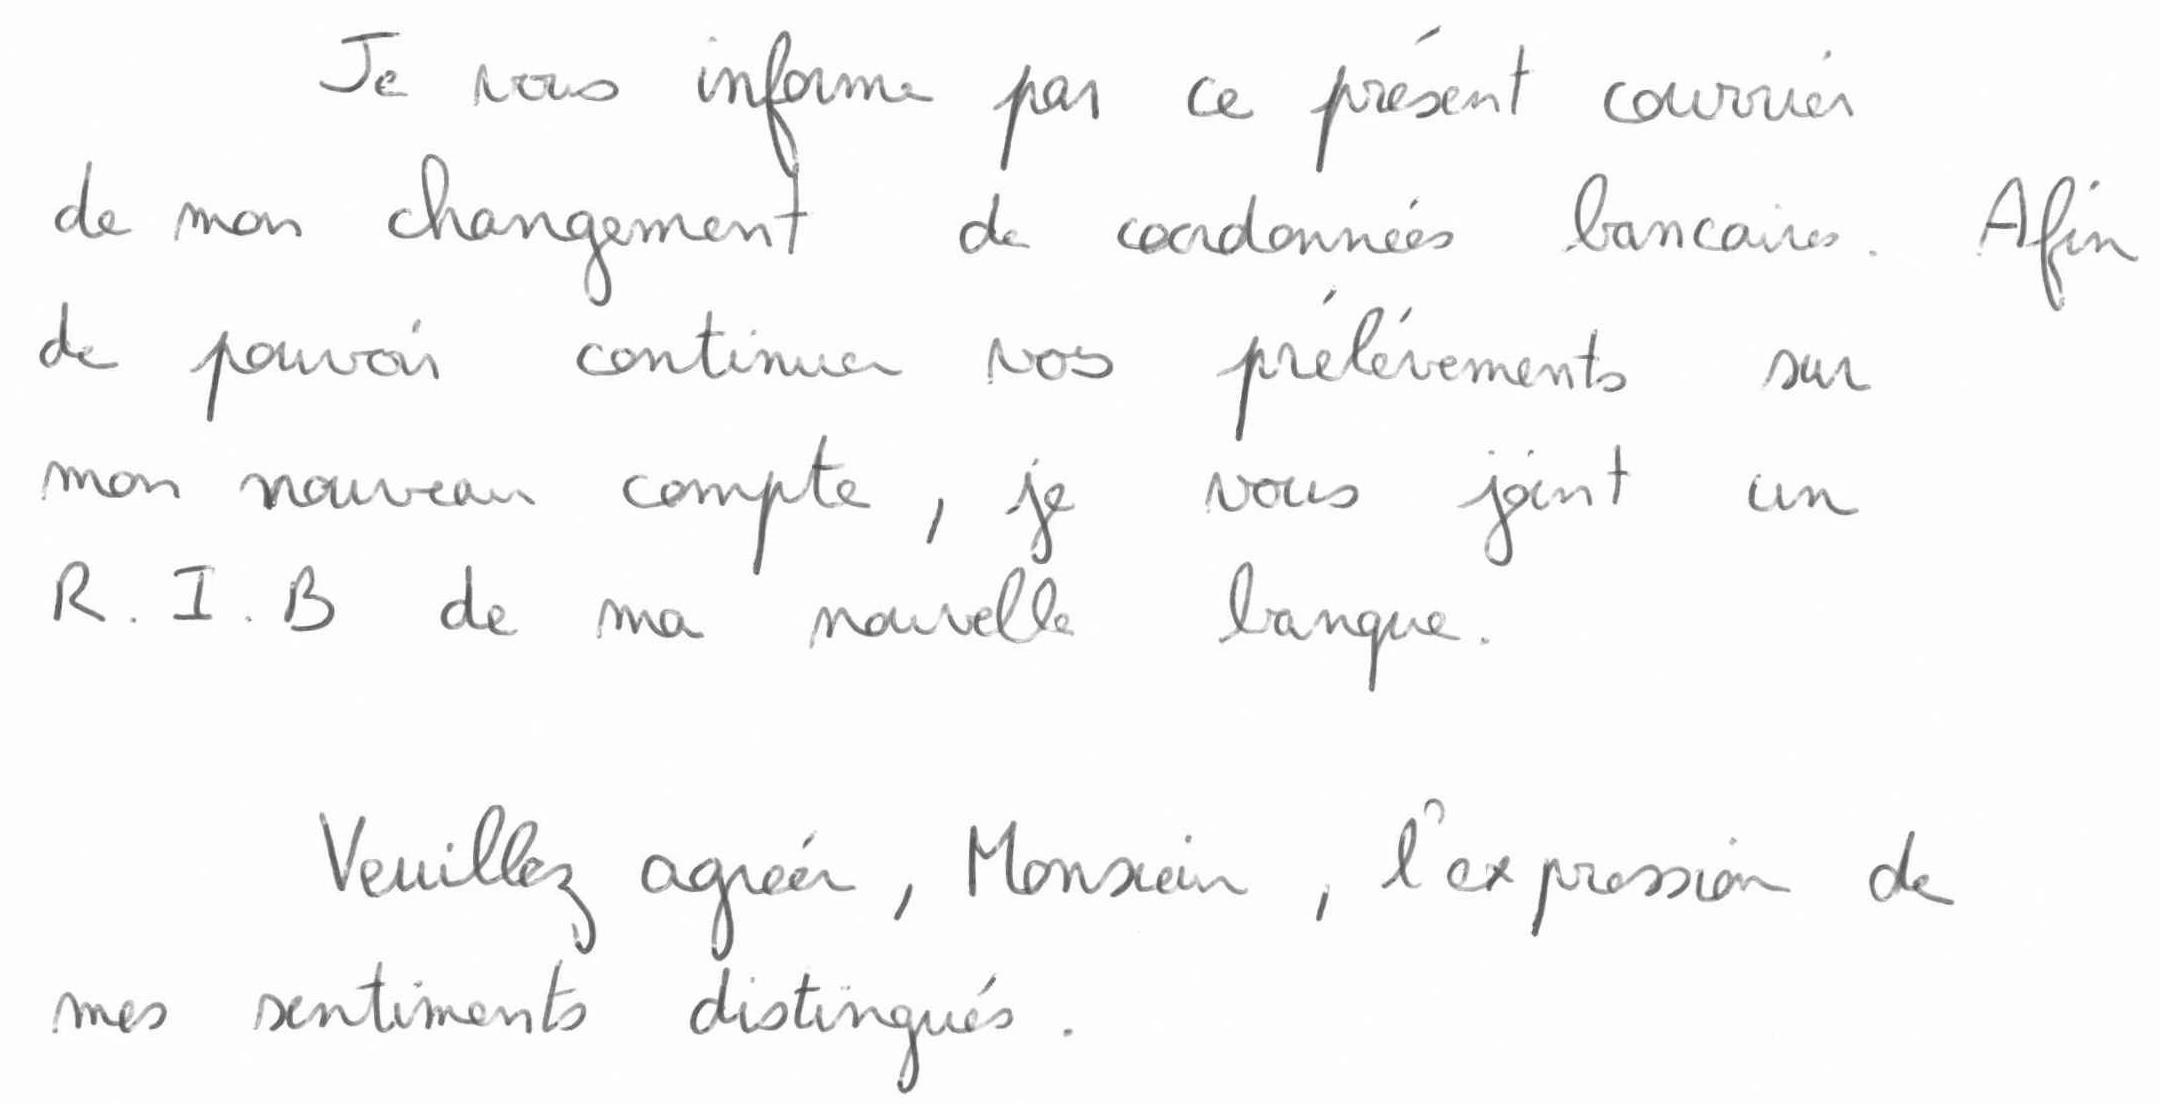 Je vous informe par ce présent courrier
de mon changement de coordonnées bancaires. Afin
de pouvoir continuer vos prélévements sur
mon nouveau compte, je vous joint un
R.I.B de ma nouvelle banque.
Veuillez agréer, Monsieur, l'expression de
mes sentiments distingués.